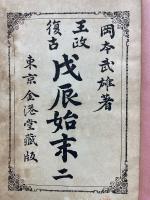 岡本武雄著
王政
復古
戊辰始末 二
東京 金港堂藏版